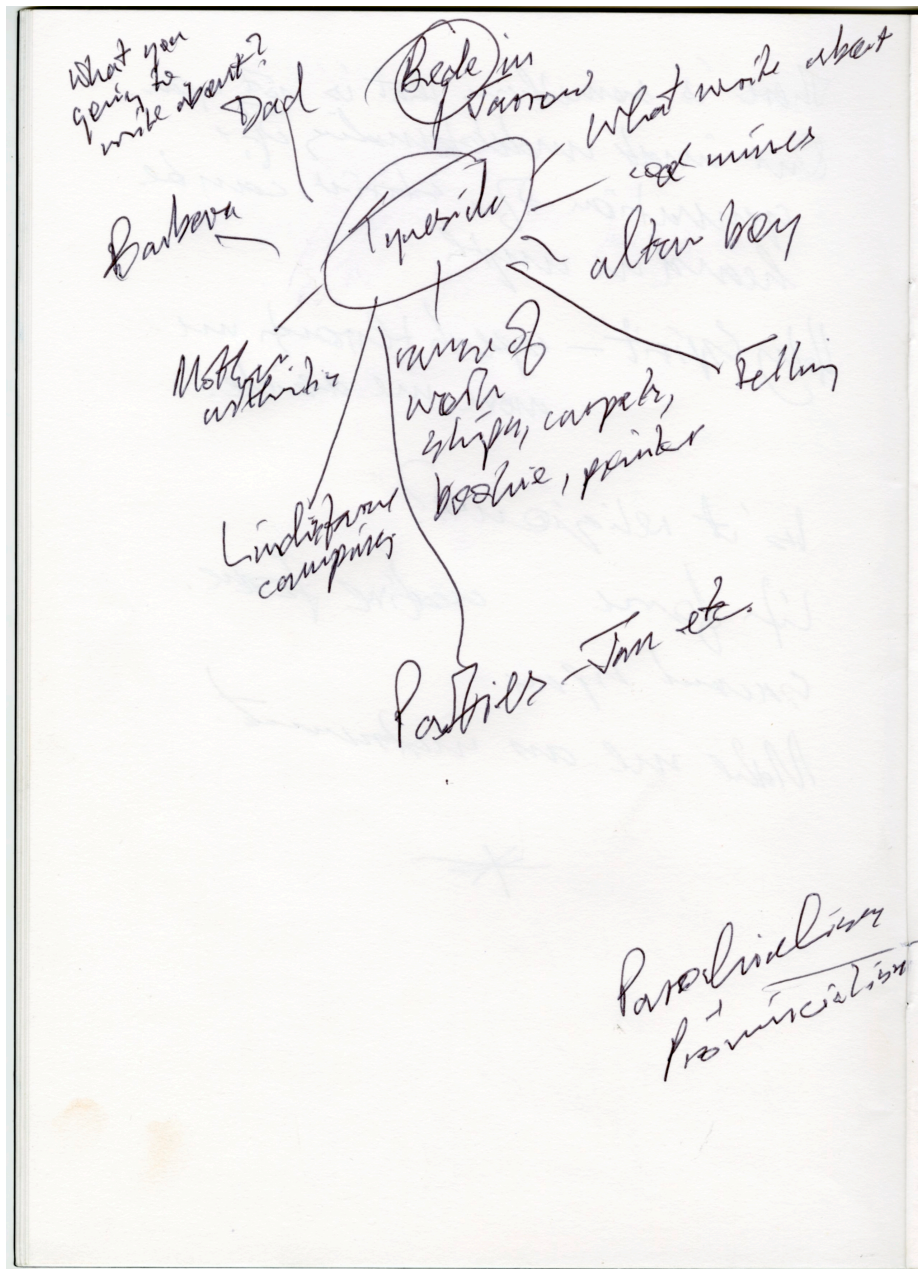 What you
going to
write about?
Dad
Bede in
Jarrow
What write about
coal mines
Tyneside
Barbara
altar boy
Mother
arthritis
sense of
work
ships, carpets,
bookie, painter
Felling
Lindisfarne
camping
Parties – Jan etc.
Parochialism
Provincialism